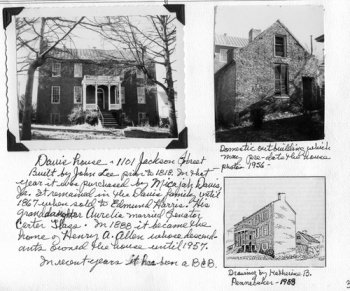 Davis House - 1101 Jackson Street
Built by John Lee prior to 1818. In that
year it was purchased by Micajah Davis,
Jr. It remained in the Davis family until
1867 when sold to Edmund Harris. His
granddaughter Aurelia married Senator
Carter Glass. In 1888 it became the
home of Henry A. Allen whose descend-
ants owned the house until 1957.
In recent years it has been a B&B.
Domestic outbuilding which
may pre-date the house
photo 1936
Drawing by Katherine B.
Pennebaker - 1983